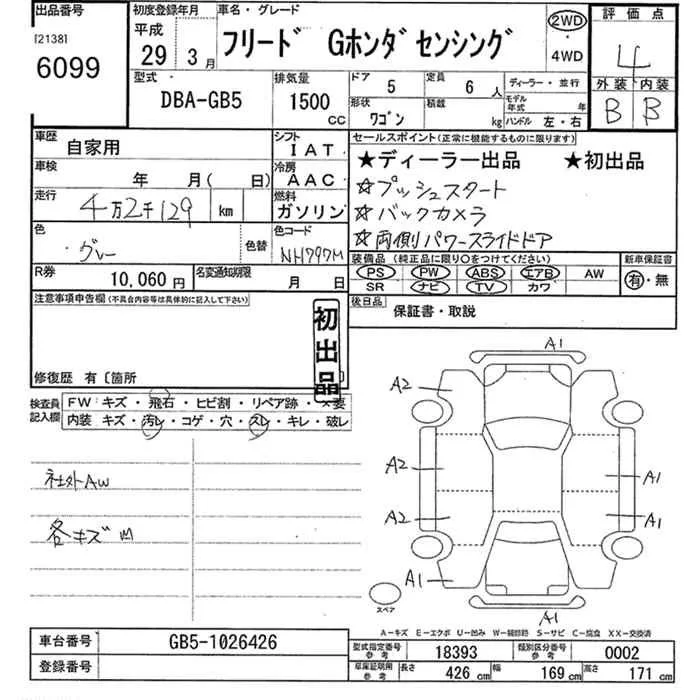 出品番号 初度登録年月 車名・グレード 評価点
[2138] 平成
6099 29年 3月 フリード Gホンダセンシング 2WD ・ 4WD 4
型式 排気量 ドア 5 定員 6人 ディーラー・並行 外装 内装
DBA-GB5 1500cc 形状 ワゴン 積載 kg モデル年式 年 B B
ハンドル 左・右
車歴 自家用 シフト IAT セールスポイント(正常に機能するものに限ります)
車検 年 月( 日) 冷房 AAC ★ディーラー出品 ★初出品
走行 4万2千129 km 燃料 ガソリン ☆プッシュスタート
☆バックカメラ
色 グレー 色替 色コード NH797M ☆両側パワースライドドア
装備品 (純正品に限り○をつけてください) 新車保証書
R券 10,060円 名変通知期限 月 日 PS PW ABS エアB AW 有・無
SR ナビ TV カワ
注意事項申告欄(不具合内容等は具体的に記入して下さい) 後日品 保証書・取説
初出品
修復歴 有〔箇所
検査員記入欄 FW:キズ・飛石・ヒビ割・リペア跡・×要
内装:キズ・汚レ・コゲ・穴・スレ・キレ・破レ
A1
A2
A2 A1
社外AW
A2 A1
各キズM
A1
スペア
A1
A-キズ E-エクボ U-凹み W-補修跡 S-サビ C-腐食 XX-交換済
車台番号 GB5-1026426 型式指定番号 参考 18393 類別区分番号 参考 0002
登録番号 車庫証明用 参考 長さ 426cm 幅 169cm 高さ 171cm